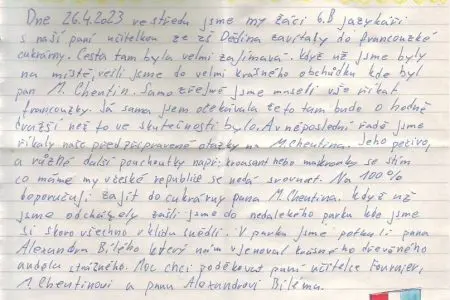 Dne 26.4.2023 ve středu jsme my žáci 6.B jazykáři
s naší paní učitelkou ze zš Dědina zavítaly do francouzské
cukrárny. Cesta tam byla velmi zajímavá. Když už jsme byly
na místě, vešli jsme do velmi krásného obchůdku kde byl
pan M. Cheutin. Samozřejmě jsme museli vše říkat
francouzky. Já sama jsem očekávala že to tam bude o hodně
dražší než to ve skutečnosti bylo. A v neposlední řadě jsme
říkaly naše před připravené otázky na M.Cheutina. Jeho pečivo,
a různé další pouchoutky např: krousant nebo makronky se s tím
co máme my v české republice se nedá srovnat. Na 100%
doporučuji zajít do cukrárny pana M.Cheutina. Když už
jsme odcházely zašli jsme do nedalekého parku kde jsme
si skoro všechno v klidu snědli. V parku jsme potkali pana
Alexandra Bílého který nám věnoval krásného dřevěného
anděla strážného. Moc chci poděkovat paní učitelce Fournier,
M.Cheutinovi a panu Alexandrovi Bílému.